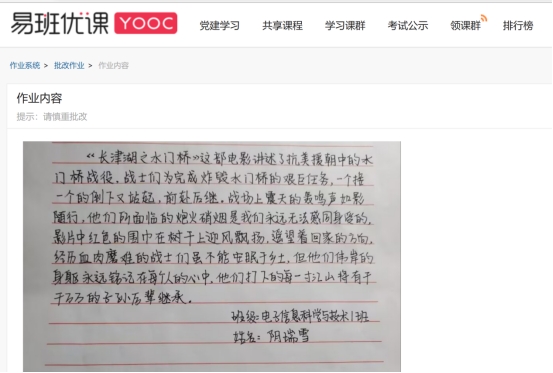 易班优课 YOOC 党建学习 共享课程 学习课群 考试公示 领课群 排行榜
作业系统 > 批改作业 > 作业内容
作业内容
提示：请慎重批改
《长津湖之水门桥》这部电影讲述了抗美援朝中的水
门桥战役，战士们为完成炸毁水门桥的艰巨任务，一个接
一个的倒下又站起，前赴后继。战场上震天的轰鸣声如影
随行，他们所面临的炮火硝烟是我们永远无法感同身受的，
影片中红色的围巾在树干上迎风飘扬，遥望着回家的方向，
经历血肉磨难的战士们虽不能安眠于乡土，但他们伟岸的
身躯永远铭记在每个人的心中，他们打下的每一寸江山将有千
千万万的子孙后辈继承。
班级：电子信息科学与技术1班
姓名：阴瑞雪